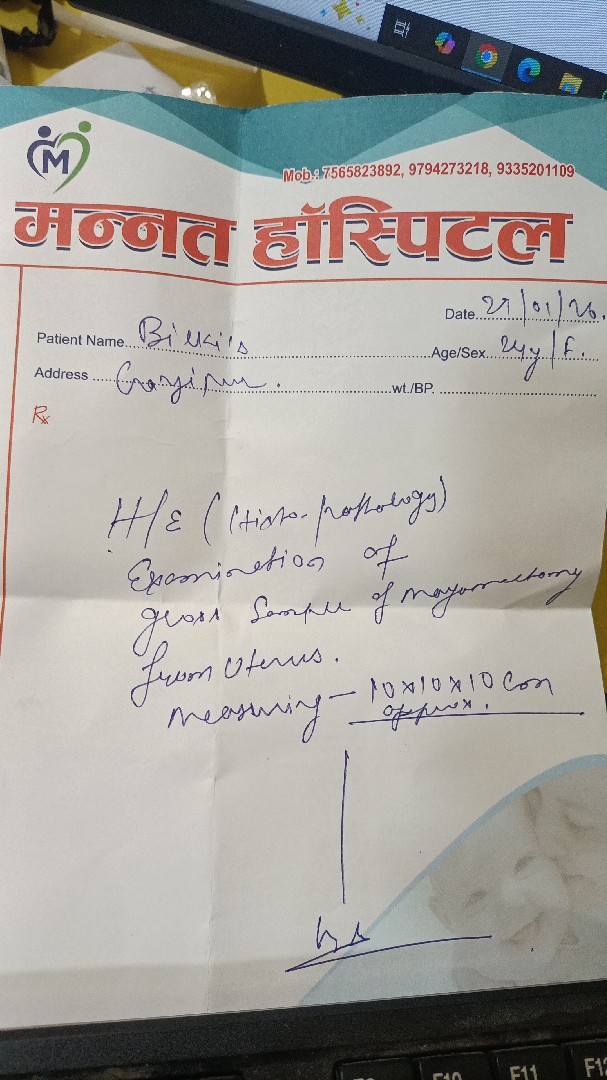 M
Mob.: 7565823892, 9794273218, 9335201109
मन्नत हॉस्पिटल
Date 27/01/26.
Patient Name Bilkis
Age/Sex 24y/F.
Address Gazipur.
wt./BP.
Rx
H/E (Histo-pathology)
Examination of
gross Sample of mayomectomy
from Uterus.
measuring – 10x10x10 Cm
approx.
F10 F11 F12